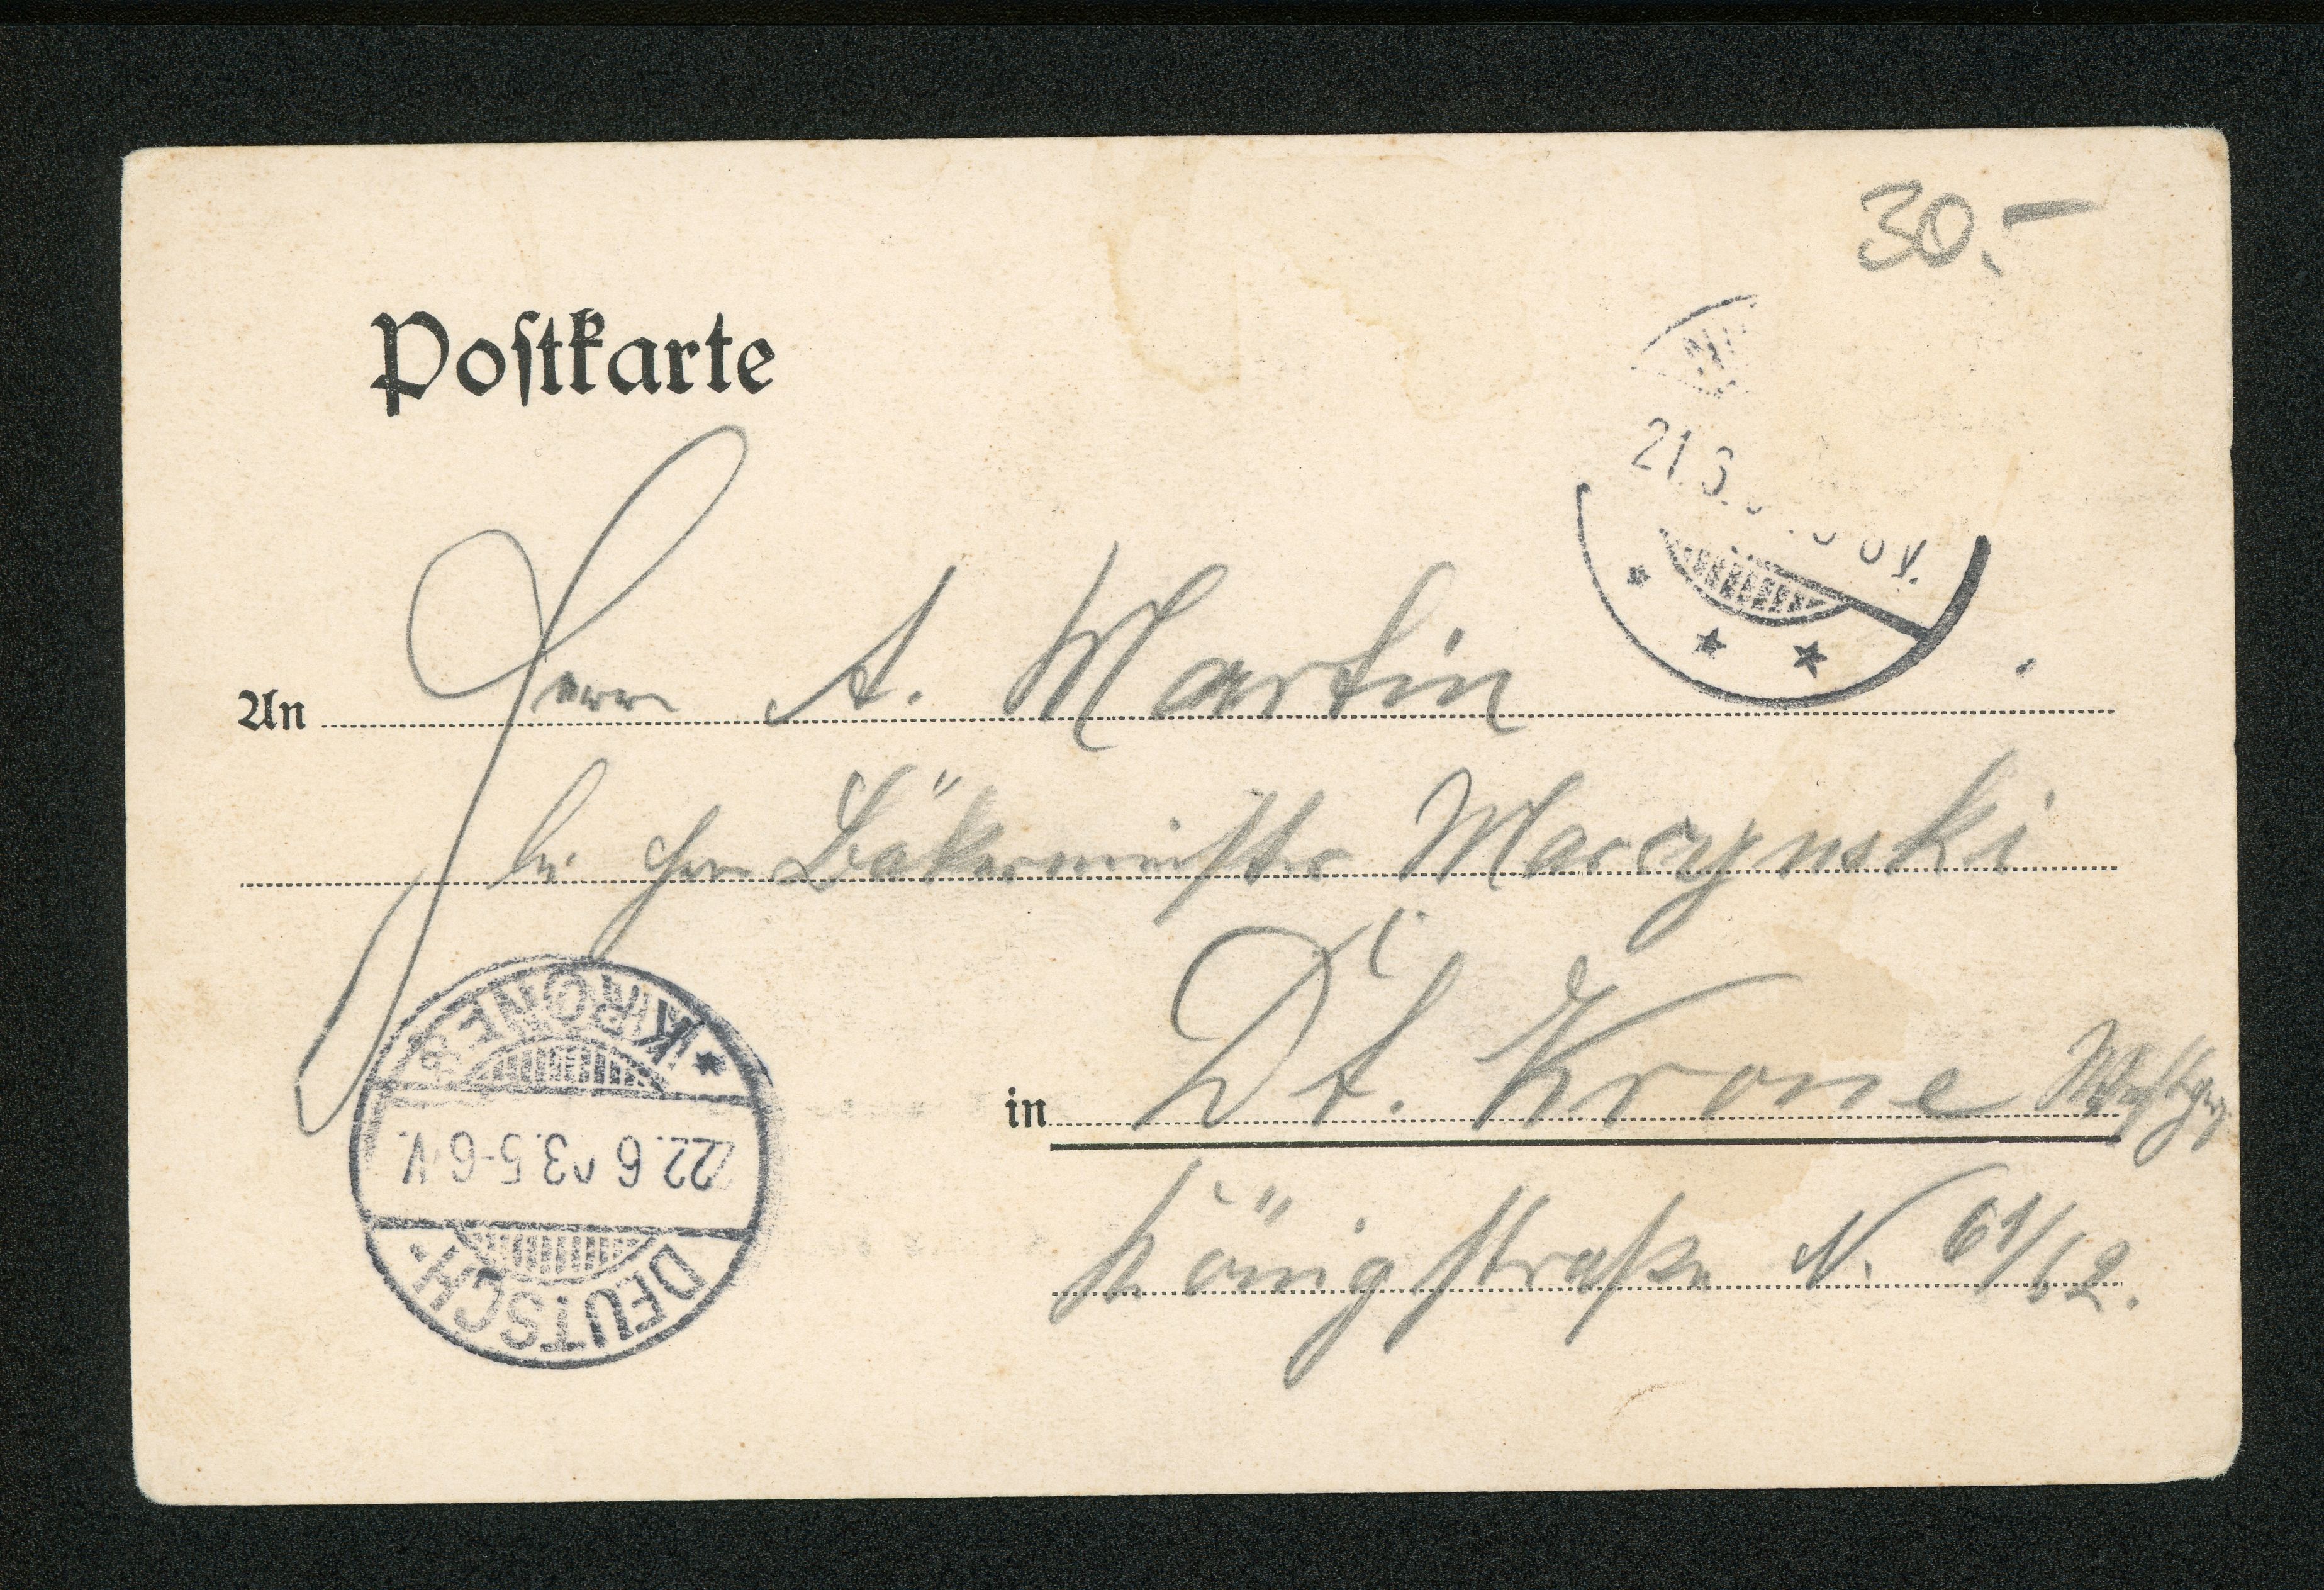 30.-
Postkarte
21.
V.
An Herrn A. Martin
bei Herrn Bäkermeister Marcynski
in Dt. Krone Westpr.
Königstraße N. 61/62.
* KRONE *
22.6 03.5-6 V.
DEUTSCH-